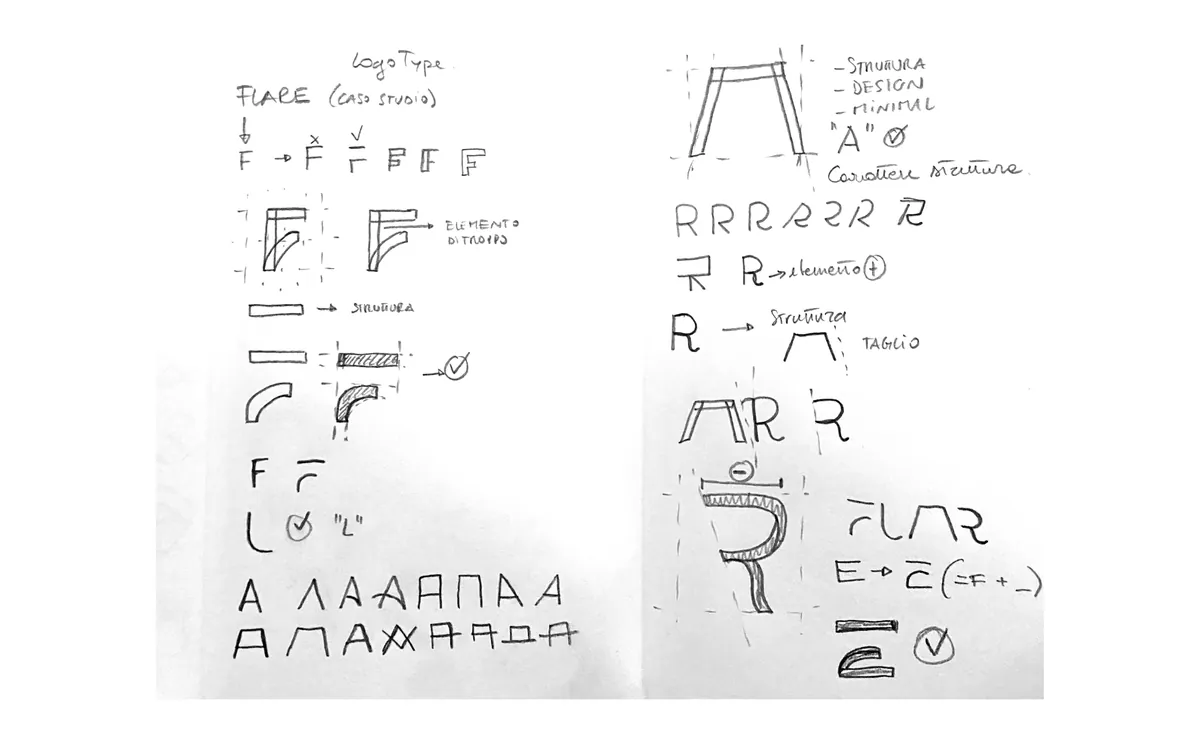 LogoType
FLARE (CASO STUDIO)
x ✓
F → F F F F F
ELEMENTO
DI TROPPO
→ STRUTTURA
F F
L "L"
A A A A A A A A
A A A A A A A A A
- STRUTTURA
- DESIGN
- MINIMAL
"A"
Carattere struttura.
R R R R R R R
R R → elemento +
R → Struttura
TAGLIO
A R R
-
R
F L A R
E → E (= F + _)
E